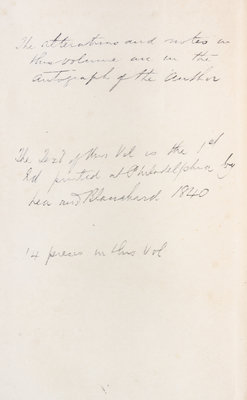 The alterations and notes in
this volume are in the
autograph of the Author
The Text of this Vol is the 1st
Ed printed at Philadelphia by
Lea and Blanchard 1840
14 pieces in this Vol